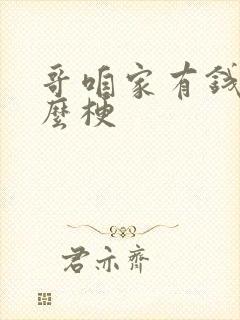 哥咱家有钱
麼梗
君亦齊